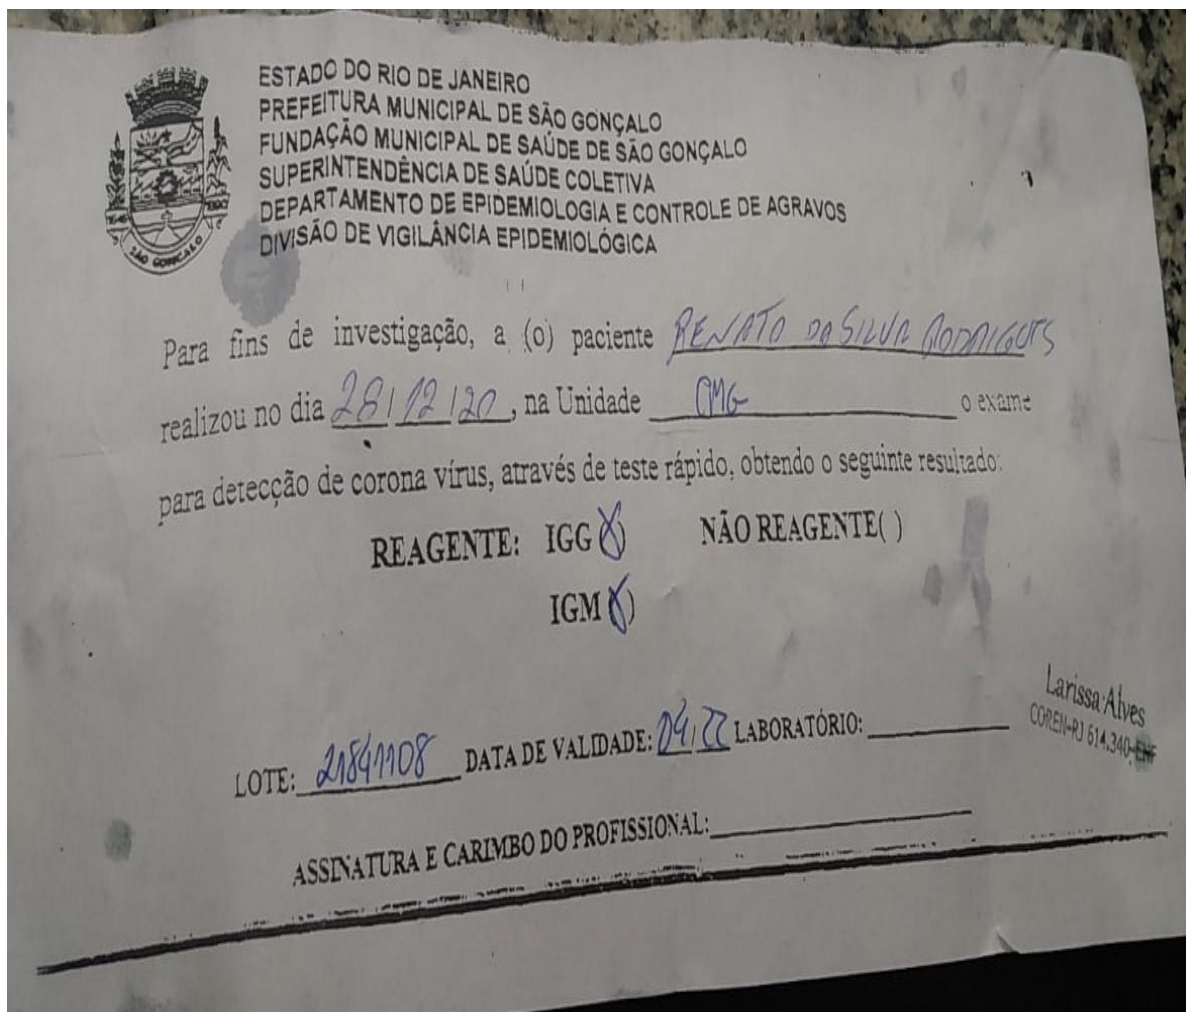 ESTADO DO RIO DE JANEIRO
PREFEITURA MUNICIPAL DE SÃO GONÇALO
FUNDAÇÃO MUNICIPAL DE SAÚDE DE SÃO GONÇALO
SUPERINTENDÊNCIA DE SAÚDE COLETIVA
DEPARTAMENTO DE EPIDEMIOLOGIA E CONTROLE DE AGRAVOS
DIVISÃO DE VIGILÂNCIA EPIDEMIOLÓGICA
SÃO GONÇALO
Para fins de investigação, a (o) paciente RENATO DA SILVA RODRIGUES
realizou no dia 28/12/20, na Unidade CMG o exame
para detecção de corona vírus, através de teste rápido, obtendo o seguinte resultado:
REAGENTE: IGG (X) NÃO REAGENTE( )
IGM (X)
Larissa Alves
COREN-RJ 614.340-ENF
LOTE: 21841108 DATA DE VALIDADE: 04/22 LABORATÓRIO:
ASSINATURA E CARIMBO DO PROFISSIONAL: